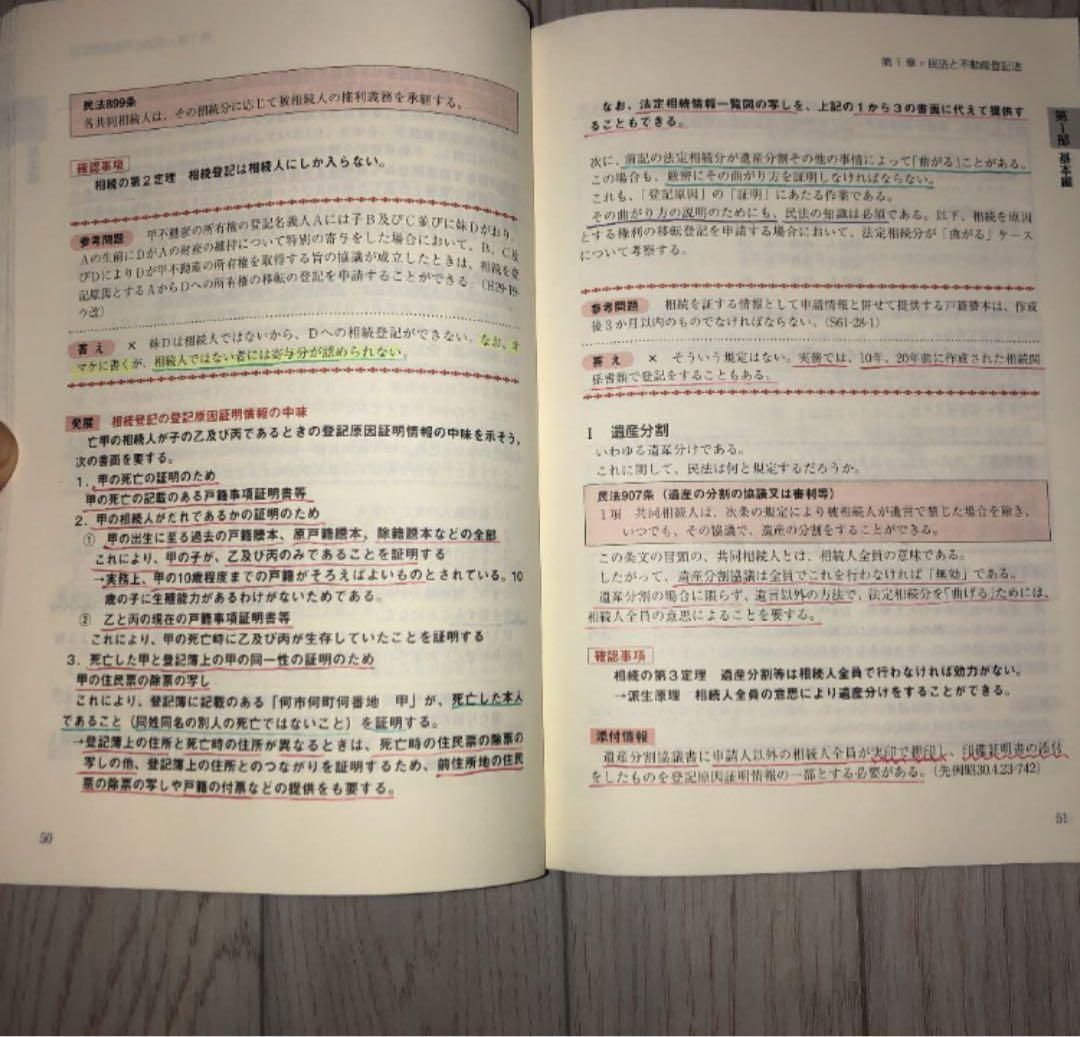 民法899条
各共同相続人は、その相続分に応じて被相続人の権利義務を承継する。
確認事項
相続の第2定理　相続登記は相続人にしか入らない。
参考問題　甲不動産の所有権の登記名義人Aには子B及びC並びに妹Dがおり、
Aの生前にDがAの財産の維持について特別の寄与をした場合において、B、C及
びDによりDが甲不動産の所有権を取得する旨の協議が成立したときは、相続を登
記原因とするAからDへの所有権の移転の登記を申請することができる。(H29-19-
ウ改)
答え　×　妹Dは相続人ではないから、Dへの相続登記ができない。なお、オ
マケに書くが、相続人ではない者には寄与分が認められない。
発展　相続登記の登記原因証明情報の中味
亡甲の相続人が子の乙及び丙であるときの登記原因証明情報の中味を示そう。
次の書面を要する。
1．甲の死亡の証明のため
甲の死亡の記載のある戸籍事項証明書等
2．甲の相続人がだれであるかの証明のため
①　甲の出生に至る過去の戸籍謄本、原戸籍謄本，除籍謄本などの全部
これにより、甲の子が、乙及び丙のみであることを証明する
→実務上、甲の10歳程度までの戸籍がそろえばよいものとされている。10
歳の子に生殖能力があるわけがないためである。
②　乙と丙の現在の戸籍事項証明書等
これにより、甲の死亡時に乙及び丙が生存していたことを証明する
3．死亡した甲と登記簿上の甲の同一性の証明のため
甲の住民票の除票の写し
これにより、登記簿に記載のある「何市何町何番地　甲」が、死亡した本人
であること（同姓同名の別人の死亡ではないこと）を証明する。
→登記簿上の住所と死亡時の住所が異なるときは、死亡時の住民票の除票の
写しの他、登記簿上の住所とのつながりを証明するため、前住所地の住民
票の除票の写しや戸籍の付票などの提供をも要する。
50
第1章・民法と不動産登記法
第1部　基本編
なお、法定相続情報一覧図の写しを、上記の1から3の書面に代えて提供す
ることもできる。
次に、前記の法定相続分が遺産分割その他の事情によって「曲がる」ことがある。
この場合も、厳密にその曲がり方を証明しなければならない。
これも、「登記原因」の「証明」にあたる作業である。
その曲がり方の説明のためにも、民法の知識は必須である。以下、相続を原因
とする権利の移転登記を申請する場合において、法定相続分が「曲がる」ケース
について考察する。
参考問題　相続を証する情報として申請情報と併せて提供する戸籍謄本は、作成
後3か月以内のものでなければならない。(S61-28-1)
答え　×　そういう規定はない。実務では、10年、20年前に作成された相続関
係書類で登記をすることもある。
I　遺産分割
いわゆる遺産分けである。
これに関して、民法は何と規定するだろうか。
民法907条（遺産の分割の協議又は審判等）
1項　共同相続人は、次条の規定により被相続人が遺言で禁じた場合を除き、
いつでも、その協議で、遺産の分割をすることができる。
この条文の冒頭の、共同相続人とは、相続人全員の意味である。
したがって、遺産分割協議は全員でこれを行わなければ「無効」である。
遺産分割の場合に限らず、遺言以外の方法で、法定相続分を「曲げる」ためには、
相続人全員の意思によることを要する。
確認事項
相続の第3定理　遺産分割等は相続人全員で行わなければ効力がない。
→派生原理　相続人全員の意思により遺産分けをすることができる。
添付情報
遺産分割協議書に申請人以外の相続人全員が実印で押印し、印鑑証明書の添付
をしたものを登記原因証明情報の一部とする必要がある。(先例昭30.4.23-742)
51